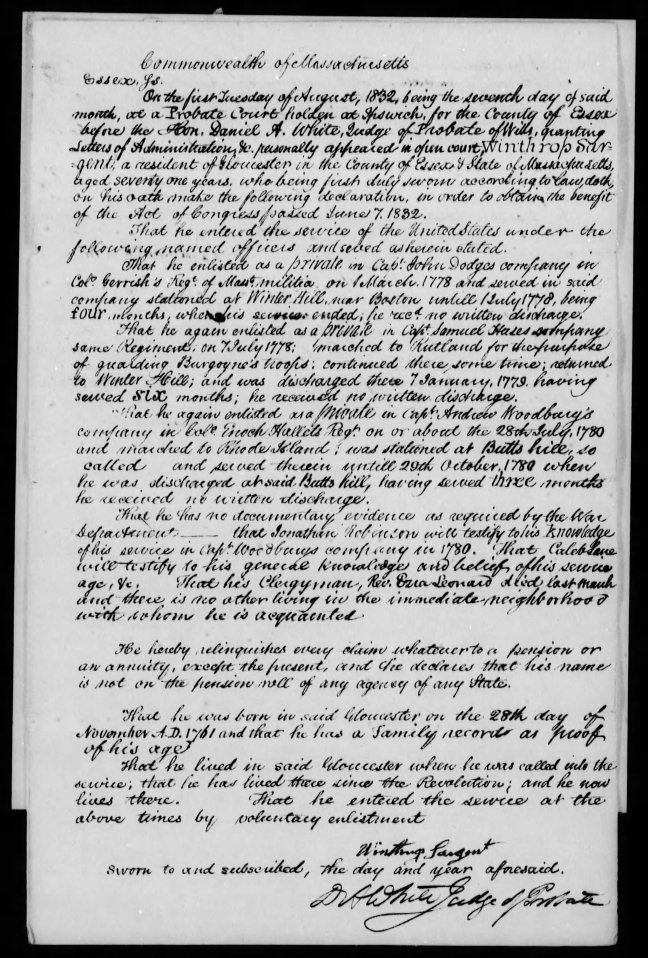 Commonwealth of Massachusetts
Essex, Ss.
On the first Tuesday of August, 1832, being the seventh day of said
month, at a Probate Court holden at Ipswich, for the County of Essex
before the Hon. Daniel A. White, Judge of Probate of Wills, granting
Letters of Administration, &c. personally appeared in open court, Winthrop Sar-
gent; a resident of Gloucester in the County of Essex & State of Massachusetts,
aged seventy one years, who being first duly sworn according to law, doth,
on his oath make the following declaration, in order to obtain the benefit
of the Act of Congress passed June 7. 1832.
That he entered the service of the United States under the
following named officers and served as herein stated.
That he enlisted as a private in Capt. John Dodges company in
Colo. Gerrish's Regt. of Mass. militia on 1 March. 1778 and served in said
company stationed at Winter Hill, near Boston untill 1 July 1778, being
four months, when his service ended; he recd. no written discharge.
That he again enlisted as a private in Capt. Samuel Hases company
same Regiment; on 7 July 1778; marched to Rutland for the purpose
of guarding Burgoyne's troops; continued there some time; returned
to Winter Hill; and was discharged there 7 January, 1779. having
served six months; he received no written discharge.
That he again enlisted as a private in Capt. Andrew Woodbury's
company in Colo. Enoch Hallets Regt. on or about the 28th July, 1780
and marched to Rhode Island; was stationed at Butts hill, so
called and served therein untill 29th October, 1780 when
he was discharged at said Butts hill, having served three months
he received no written discharge.
That he has no documentary evidence as required by the War
Department that Jonathan Robinson will testify to his knowledge
of his service in Capt. Woodburys company in 1780. That Caleb Lane
will testify to his general knowledge and belief of his service
age, &c. That his Clergyman, Rev. Ezra Leonard died last March
and there is no other living in the immediate neighborhood
with whom he is acquainted
He hereby relinquishes every claim whatever to a pension or
an annuity, except the present, and he declares that his name
is not on the pension roll of any agency of any State.
That he was born in said Gloucester on the 28th day of
November A.D. 1761 and that he has a family record as proof
of his age
That he lived in said Gloucester when he was called into the
service; that he has lived there since the Revolution; and he now
lives there. That he entered the service at the
above times by voluntary enlistment
Winthrop Sargent
Sworn to and subscribed, the day and year aforesaid.
D A White Judge of Probate